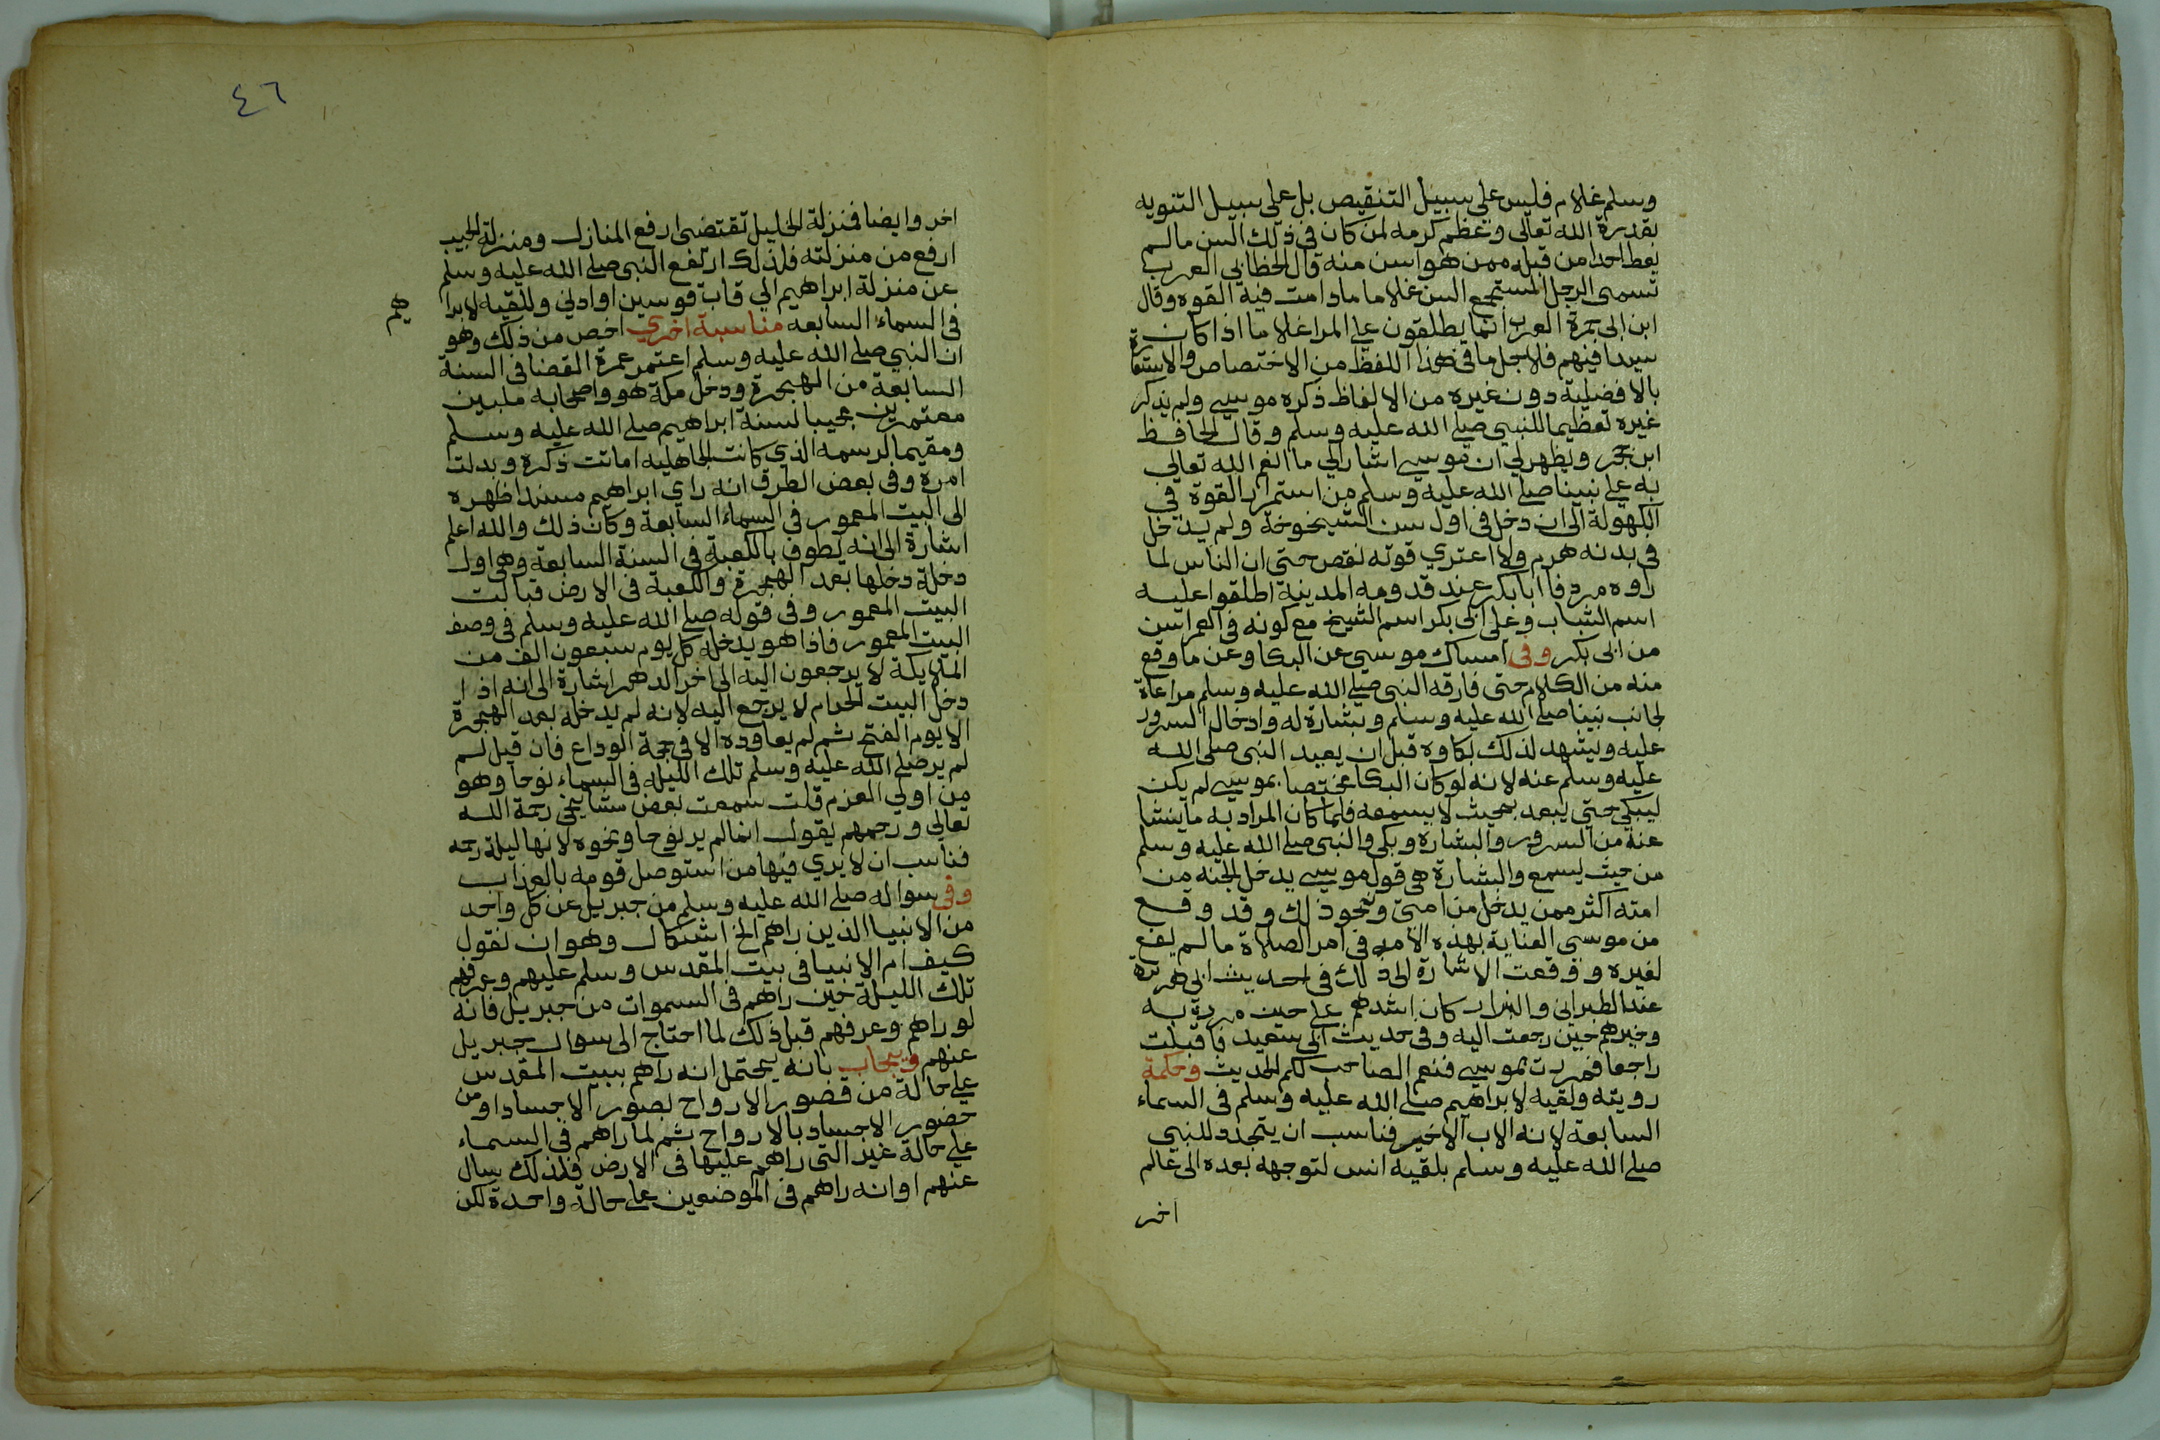 وسلم غلام فليس على سبيل التنقيص بل على سبيل التنويه
بقدرة الله تعالى وعظم كرمه لمن كان في ذلك السن ما لم
يعط احدا من قبله ممن هو اسن منه قال الخطابي العرب
تسمى الرجل المستجمع السن غلاما ما دامت فيه القوه وقال
ابن ابي جمرة العرب انما يطلقون على المرا غلاما اذا كان
سيدا فيهم فلاجل ما في هذا اللفظ من الاختصاص والاشارة
بالافضلية دون غيره من الالفاظ ذكره موسى ولم يذكر
غيره تعظيما للنبي صلى الله عليه وسلم وقال الحافظ
ابن حجر ويظهر لي ان موسى اشار الى ما انعم الله تعالى
به على نبينا صلى الله عليه وسلم من استمرار القوة في
الكهولة الى ان دخل في اول سن الشيخوخة ولم يدخل
في بدنه هرم ولا اعترى قوته نقص حتى ان الناس لما
راوه مردفا ابا بكر عند قدومه المدينة اطلقوا عليه
اسم الشاب وعلى ابي بكر اسم الشيخ مع كونه في العمر اسن
من ابي بكر وفي امساك موسى عن البكا وعن ما وقع
منه من الكلام حتى فارقه النبي صلى الله عليه وسلم مراعاة
لجانب نبينا صلى الله عليه وسلم وبشارة له وادخال السرور
عليه ويشهد لذلك بكاوه قبل ان يبعد النبي صلى الله
عليه وسلم عنه لانه لو كان البكا مختصا بموسى لم يكن
ليبكي حتى يبعد بحيث لا يسمعه فلما كان المراد به ما ينشا
عنه من السرور والبشاره وبكى والنبي صلى الله عليه وسلم
من حيث يسمع والبشارة هي قول موسى يدخل الجنه من
امته اكثر ممن يدخل من امتي ونحو ذلك وقد وقع
من موسى العناية بهذه الامه في امر الصلاة ما لم يقع
لغيره ووقعت الاشارة الى ذلك في احديث ابي هريرة
عند الطبراني والبزار كان اشدهم على حين مررت به
وخيرهم حين رجعت اليه وفي حديث ابي سعيد فاقبلت
راجعا فمررت بموسى فنعم الصاحب لكم الحديث وحكمة
رويته ولقيه لابراهيم صلى الله عليه وسلم في السماء
السابعة لانه الاب الاخير فناسب ان يتجدد للنبي
صلى الله عليه وسلم بلقيه انس لتوجهه بعده الى عالم
اخر
٤٦
اخر وايضا فمنزلة الخليل تقتضى ارفع المنازل ومنزلة الحبيب
ارفع من منزلته فلذلك ارتفع النبي صلى الله عليه وسلم
عن منزلة ابراهيم الى قاب قوسين او ادنى وللقيه لابرا
هيم
في السماء السابعه مناسبة اخرى اخص من ذلك وهو
ان النبي صلى الله عليه وسلم اعتمر عمرة القضا في السنة
السابعة من الهجرة ودخل مكة هو واصحابه ملبين
معتمرين محييا لسنة ابراهيم صلى الله عليه وسلم
ومقيما لرسمه الذي كانت الجاهليه اماتت ذكره وبدلت
امره وفي بعض الطرق انه راي ابراهيم مسندا ظهره
الى البيت المعمور في السماء السابعة وكان ذلك والله اعلم
اشارة الى انه يطوف بالكعبة في السنة السابعة وهي اول
دخلة دخلها بعد الهجرة والكعبة في الارض قبالت
البيت المعمور وفي قوله صلى الله عليه وسلم في وصف
البيت المعمور فاذا هو يدخله كل يوم سبعون الف من
الملايكة لا يرجعون اليه الى اخر الدهر اشارة الى انه اذا
دخل البيت الحرام لا يرجع اليه لانه لم يدخله بعد الهجرة
الا يوم الفتح ثم لم يعاوده الا في حجة الوداع فان قيل لم
لم ير صلى الله عليه وسلم تلك الليلة في السماء نوحا وهو
من اولي العزم قلت سمعت بعض مشايخي رحمة الله
تعالى ورحمهم يقول انما لم ير نوحا ونحوه لانها ليلة رحمه
فناسب ان لا يرى فيها من استوصل قومه بالعذاب
وفي سواله صلى الله عليه وسلم من جبريل عن كل واحد
من الانبيا الذين راهم الخ اشكال وهو ان نقول
كيف ام الانبيا في بيت المقدس وسلم عليهم وعرفهم
تلك الليلة حين راهم في السموات من جبريل فانه
لو راهم وعرفهم قبل ذلك لما احتاج الى سوال جبريل
عنهم ويجاب بانه يحتمل انه راهم ببيت المقدس
على حالة من قصور الارواح لصور الاجساد او من
حضور الاجساد بالارواح ثم لما راهم في السماء
على حالة غير التي راهم عليها في الارض فلذلك سال
عنهم او انه راهم في الموضعين على حالة واحدة لكن